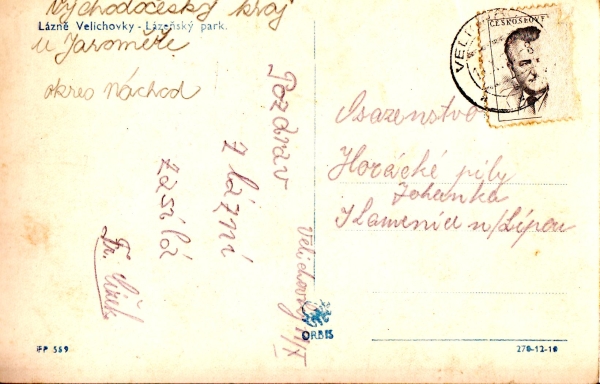 Východočeský kraj
Lázně Velichovky - Lázeňský park.
u Jaroměře
okres Náchod
Pozdrav
z lázní
zasílá
Fr.
Velichovky
/IX
VELI
ČESKOSLOV
Osazenstvo
Horácké pily
Johanka
Kamenice n/Lipou
ORBIS
FP 569
276-12-10